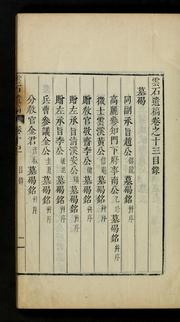 雲石遺稿卷之十三目錄
墓碣
同副承旨趙公墓碣銘并序
高麗參知門下府事南公乙珍墓碣銘并序
徵士雲溪黃公墓碣銘并序
贈教官敬齋李公墓碣銘并序
贈左承旨清溪安公墓碣銘并序
贈左承旨李公墓碣銘并序
兵曹參議金公墓碣銘并序
分教官金君墓碣銘并序
雲石遺稿 卷十三 目錄